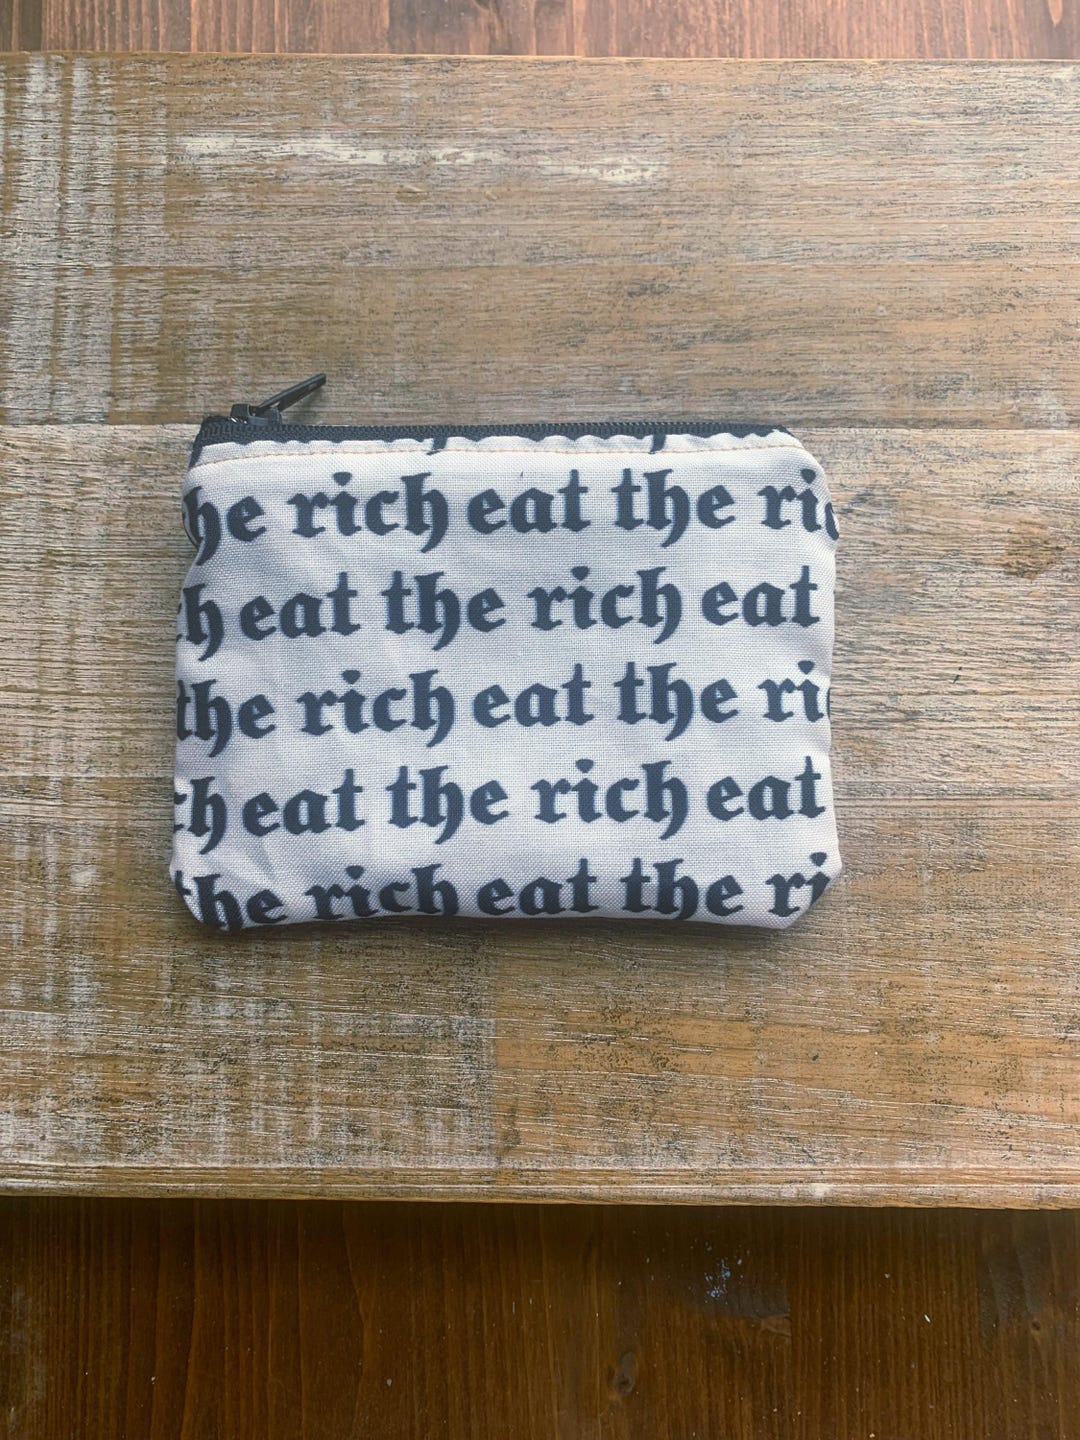 the rich eat the ri
eat the rich eat
the rich eat the ri
eat the rich eat
the rich eat the ri